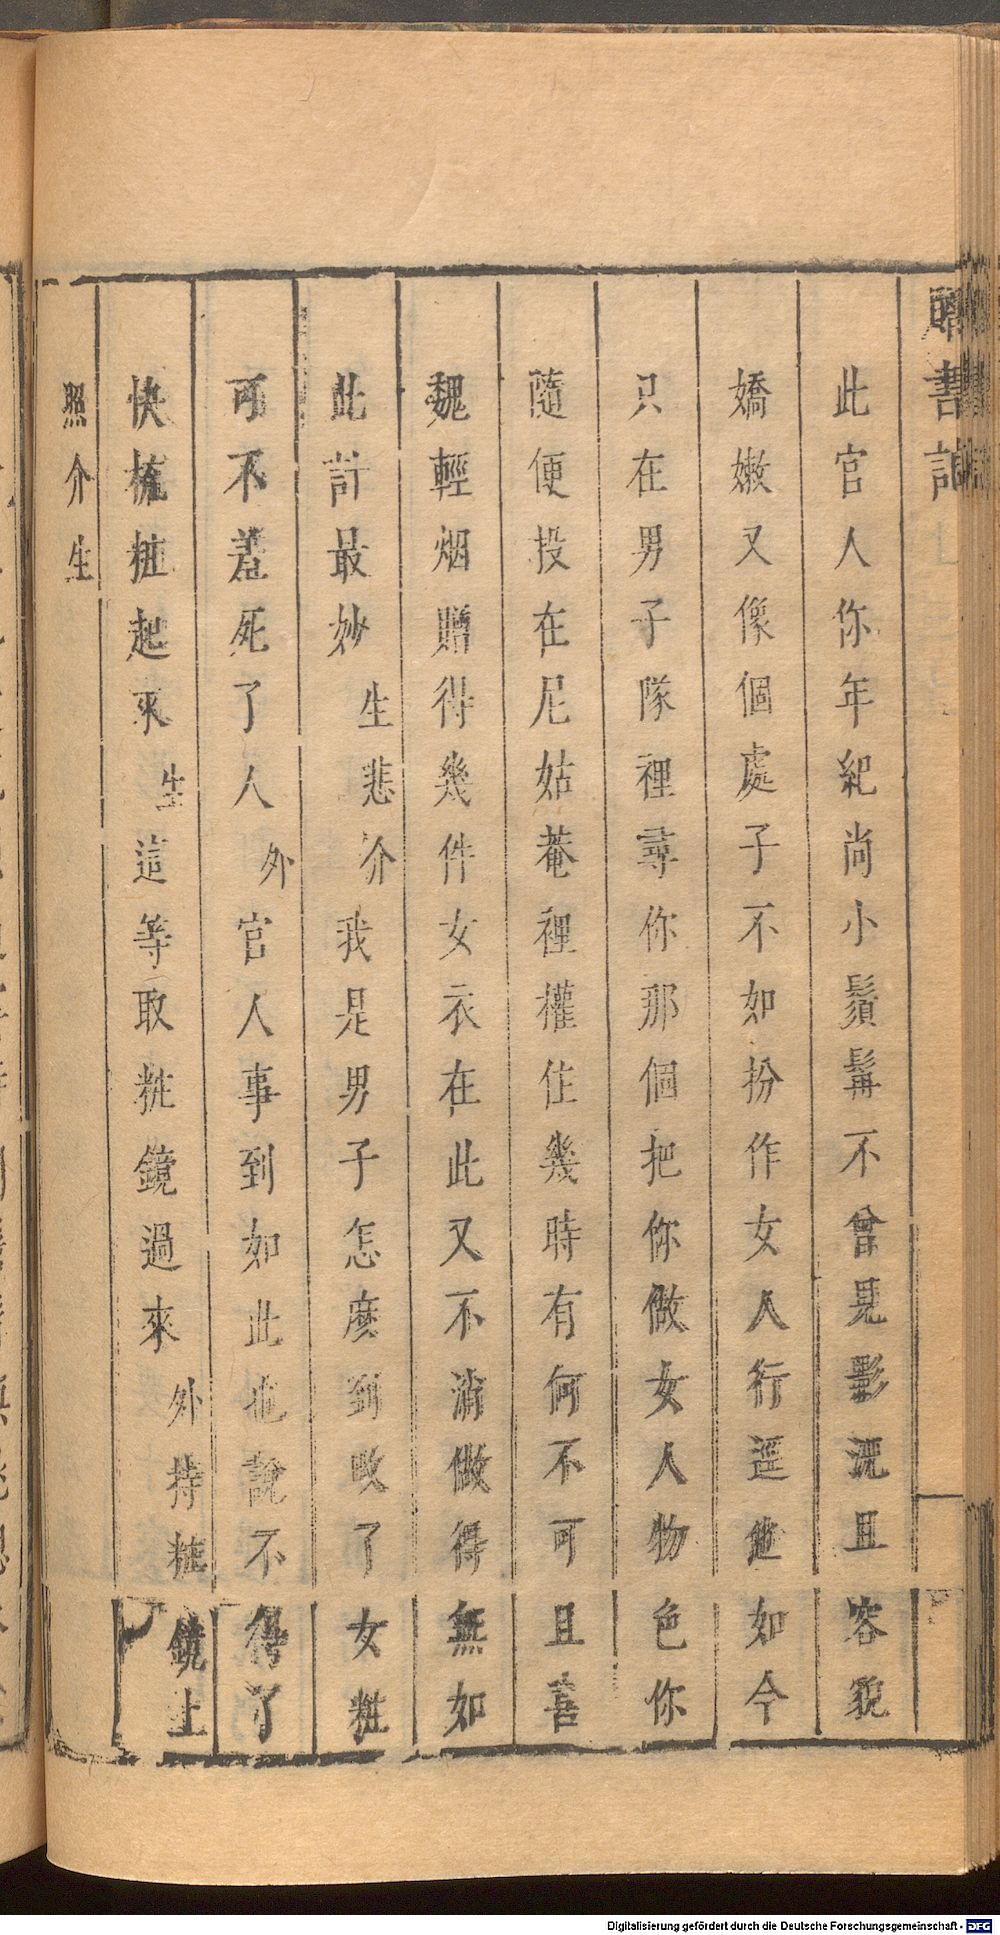 書記
此官人你年紀尚小鬚髯不曾見影況且容貌
嬌嫩又像個處子不如扮作女人行逕他如今
只在男子隊裡尋你那個把你做女人物色你
隨便投在尼姑菴裡權住幾時有何不可且喜
魏輕烟贈得幾件女衣在此又不消做得無如
此計最妙生悲介我是男子怎麽到改了女粧
可不羞死了人外官人事到如此也說不得了
快梳粧起來生這等取粧鏡過來外持粧鏡上
照介生
Digitalisierung gefördert durch die Deutsche Forschungsgemeinschaft - DFG